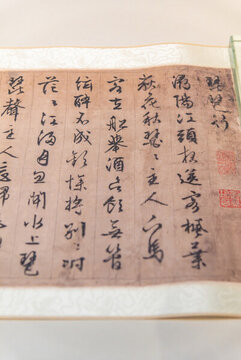 琵琶行
潯陽江頭夜送客楓葉
荻花秋瑟〻主人下馬
客在船舉酒欲飲無管
絃醉不成歡慘將別〻時
茫〻江浸月忽聞水上琵
琶聲主人忘歸